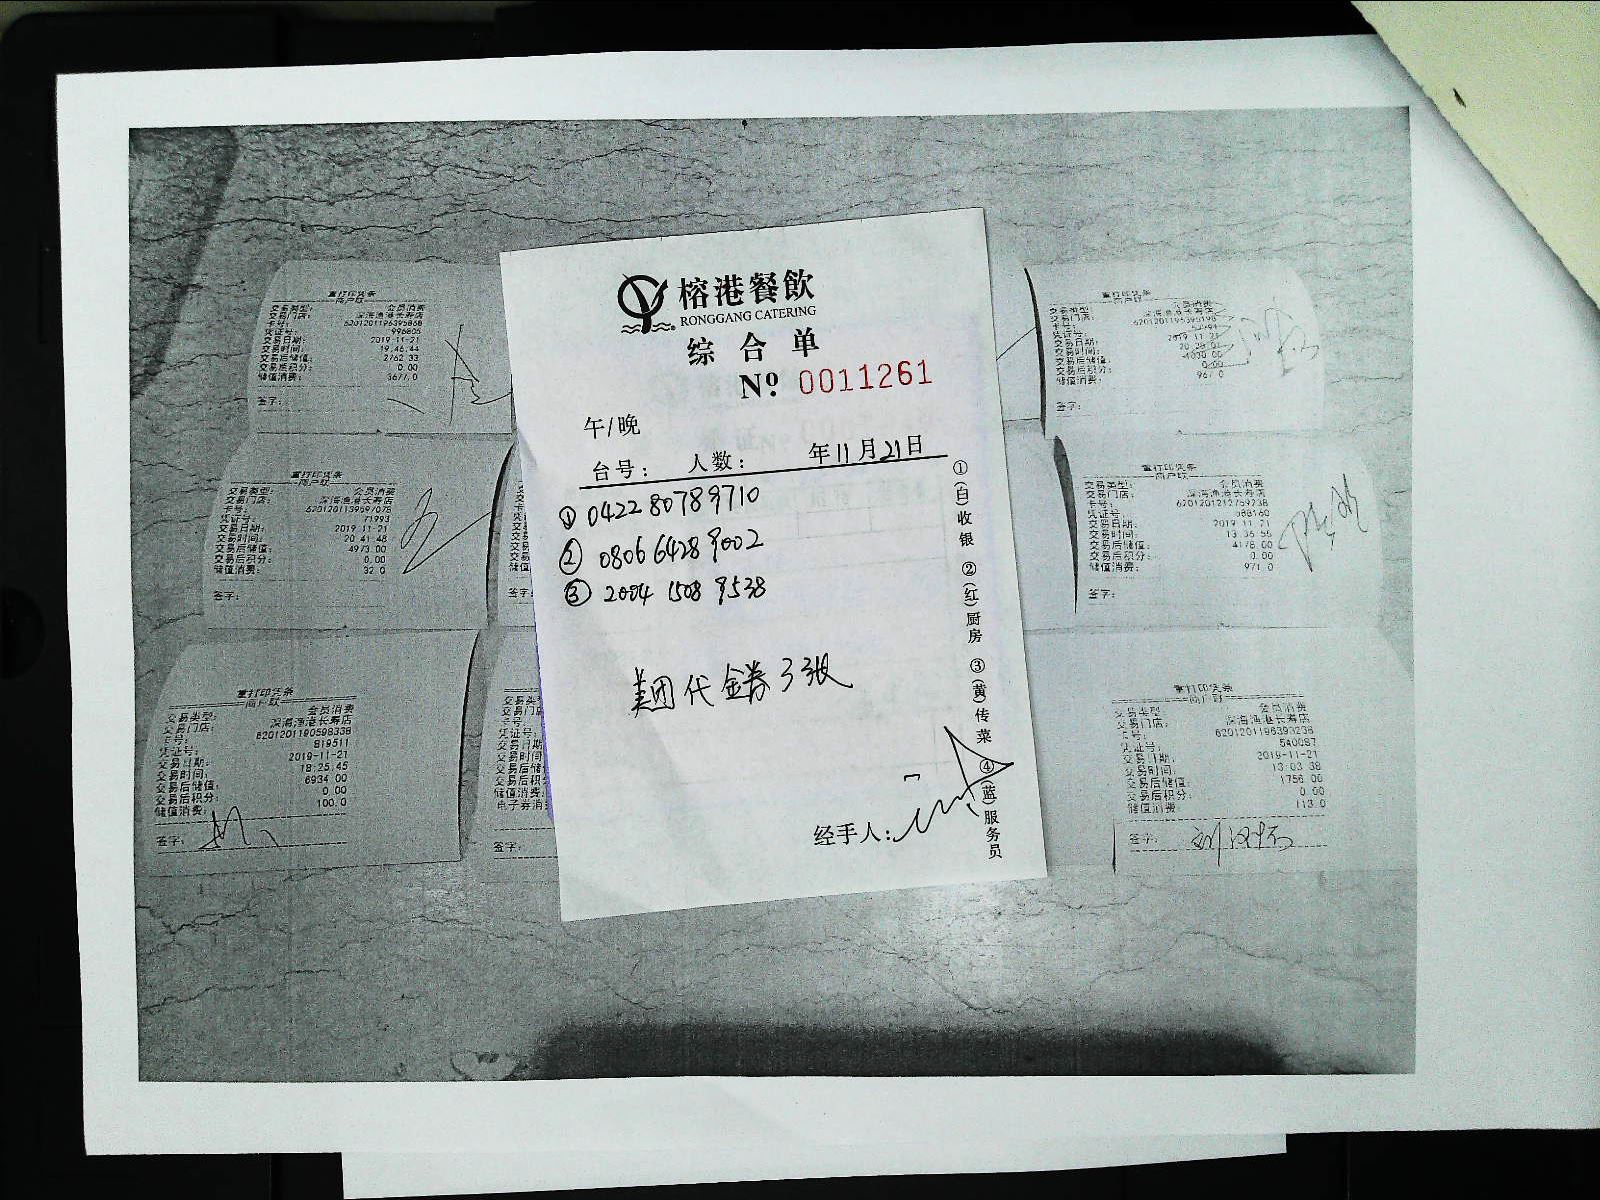 重打印凭条
商户联
交易类型: 会员消费
交易门店: 深海渔港长寿店
卡号: 6201201196395868
凭证号: 996805
交易日期: 2019-11-21
交易时间: 19:46:44
交易后储值: 2762.33
交易后积分: 0.00
储值消费: 3677.0
签字:
重打印凭条
商户联
交易类型: 会员消费
交易门店: 深海渔港长寿店
卡号: 6201201139597078
凭证号: 71993
交易日期: 2019-11-21
交易时间: 20:41:48
交易后储值: 4973.00
交易后积分: 0.00
储值消费: 32.0
签字:
重打印凭条
商户联
交易类型: 会员消费
交易门店: 深海渔港长寿店
卡号: 6201201190598338
凭证号: 819511
交易日期: 2019-11-21
交易时间: 18:25:45
交易后储值: 6934.00
交易后积分: 0.00
储值消费: 100.0
签字:
榕港餐飲
RONGGANG CATERING
综合单
Nº 0011261
午/晚
台号: 人数: 年11月21日
① 0422 8078 9710
② 0806 6428 9002
③ 2004 1508 9538
美团代金券3张
经手人:
①(白)收银 ②(红)厨房 ③(黄)传菜 ④(蓝)服务员
重打印凭条
商户联
交易类型: 会员消费
交易门店: 深海渔港长寿店
卡号:
凭证号:
交易日期: 2019-11-21
交易时间:
交易后储值:
交易后积分: 0.00
储值消费: 967.0
签字:
重打印凭条
商户联
交易类型: 会员消费
交易门店: 深海渔港长寿店
卡号: 6201201212759238
凭证号: 588160
交易日期: 2019-11-21
交易时间: 13:36:56
交易后储值: 4178.00
交易后积分: 0.00
储值消费: 971.0
签字:
重打印凭条
商户联
交易类型: 会员消费
交易门店: 深海渔港长寿店
卡号: 6201201196393236
凭证号: 540087
交易日期: 2019-11-21
交易时间: 13:03:38
交易后储值: 1756.00
交易后积分: 0.00
储值消费: 113.0
签字: